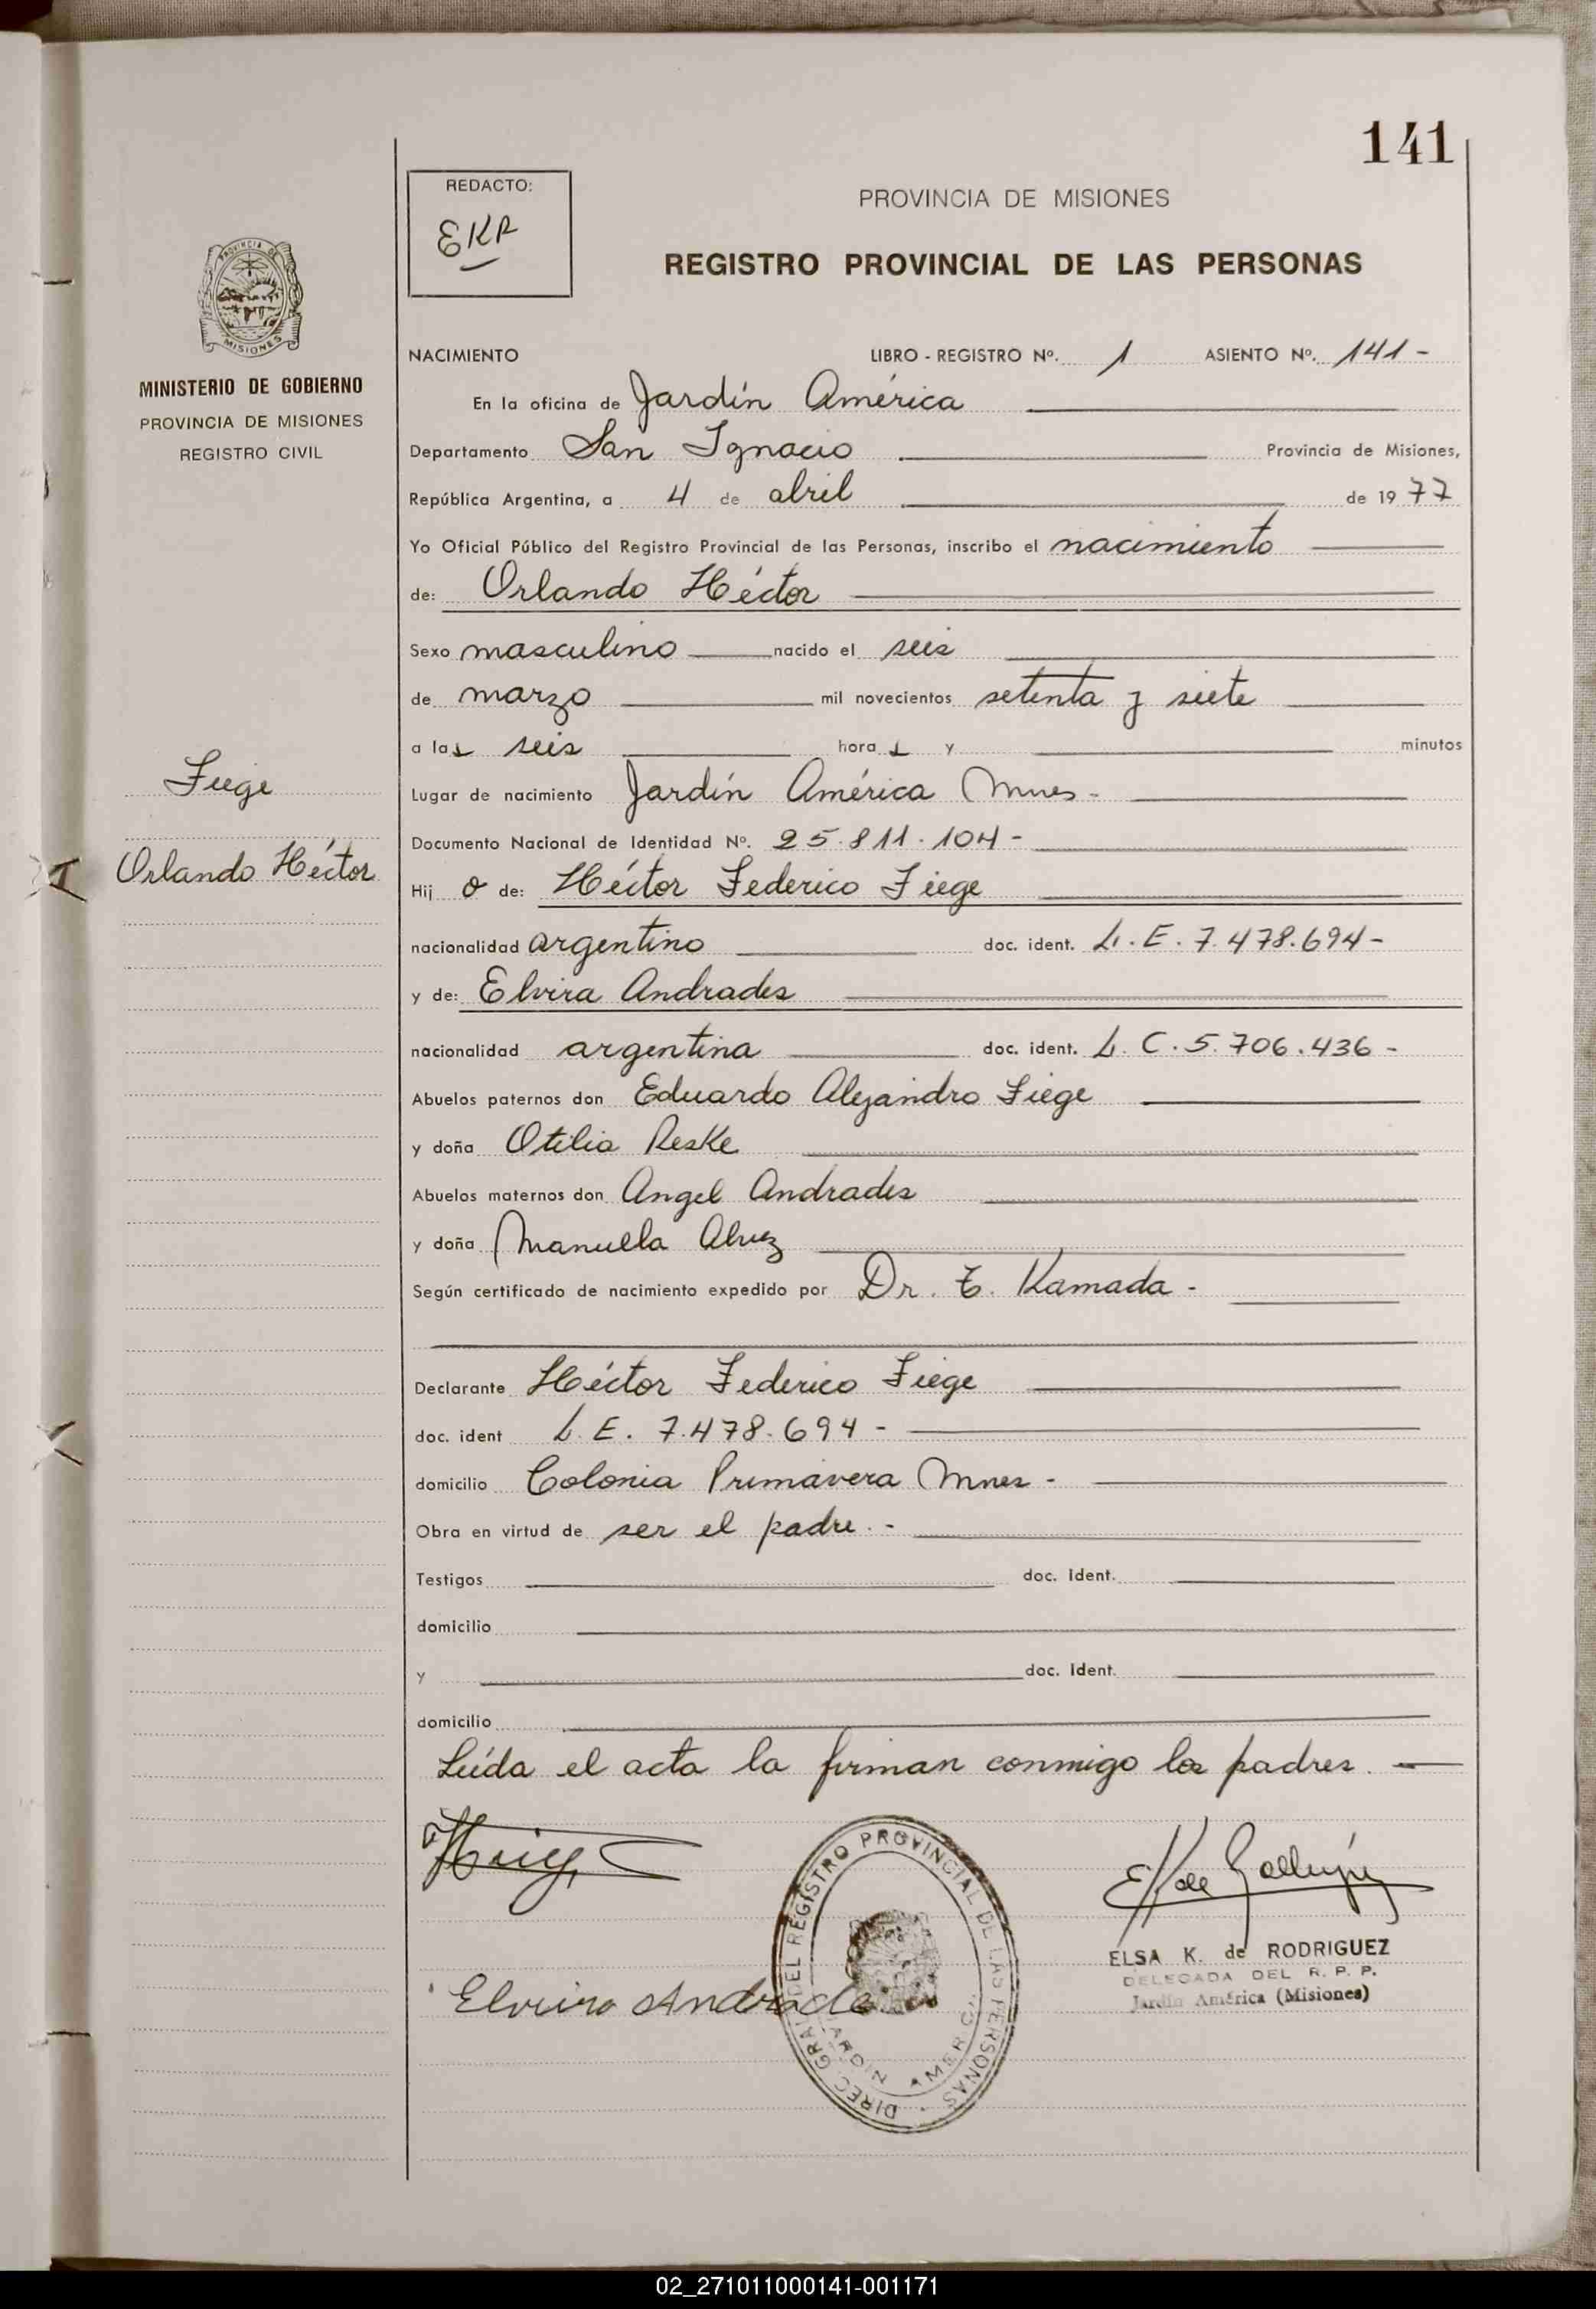 141
REDACTO:
EKR
PROVINCIA DE MISIONES
REGISTRO PROVINCIAL DE LAS PERSONAS
PROVINCIA DE
MISIONES
MINISTERIO DE GOBIERNO
PROVINCIA DE MISIONES
REGISTRO CIVIL
NACIMIENTO LIBRO - REGISTRO Nº. 1 ASIENTO Nº. 141 -
En la oficina de Jardín América
Departamento San Ignacio Provincia de Misiones,
República Argentina, a 4 de abril de 19 77
Yo Oficial Público del Registro Provincial de las Personas, inscribo el nacimiento
de: Orlando Héctor
Sexo masculino nacido el seis
de marzo mil novecientos setenta y siete
a las seis horas y minutos
Fiege
Lugar de nacimiento Jardín América Mnes -
Documento Nacional de Identidad Nº. 25.811.104 -
Orlando Héctor
Hij o de: Héctor Federico Fiege
nacionalidad argentino doc. ident. L. E. 7.478.694 -
y de: Elvira Andrades
nacionalidad argentina doc. ident. L. C. 5.706.436 -
Abuelos paternos don Eduardo Alejandro Fiege
y doña Otilia Reske
Abuelos maternos don Angel Andrades
y doña Manuella Alvez
Según certificado de nacimiento expedido por Dr. T. Kamada -
Declarante Héctor Federico Fiege
doc. ident L. E. 7.478.694 -
domicilio Colonia Primavera Mnes -
Obra en virtud de ser el padre. -
Testigos doc. Ident.
domicilio
y doc. Ident.
domicilio
Leída el acta la firman conmigo los padres.
DIREC GRAL DEL REGISTRO PROVINCIAL DE LAS PERSONAS
JARDIN AMERICA
ELSA K. de RODRIGUEZ
DELEGADA DEL R. P. P.
Jardín América (Misiones)
Elvira Andrade
02_271011000141-001171